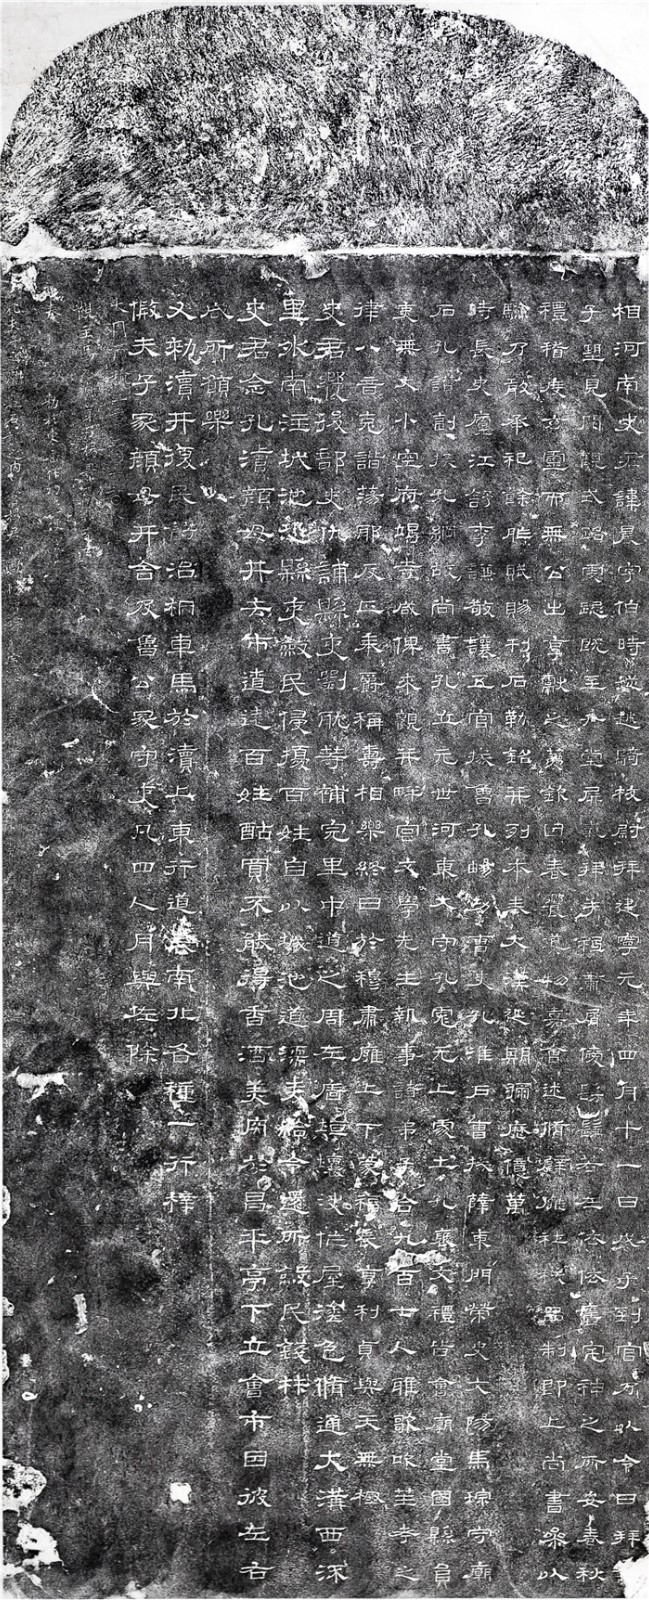 相河南史君諱晨字伯時從越騎校尉拜建寧元年四月十一日戊子到官乃以令日拜
子望見闕觀式路虔跽既至升堂屏氣拜手祗肅屑僾髣髴若在依依舊宅神之所安春秋
禮稽度玄靈而無公出享獻之薦欽因春饗導物嘉會述脩辟雍社稷品制即上尚書參以
驗乃敢承祀餘胙賦賜刊石勒銘并列本奏大漢延期彌歷億萬
時長史廬江舒李謙敬讓五官掾魯孔暢功曹史孔淮戶曹掾薛東門榮史文陽馬琮守廟
石孔讚副掾孔綱故尚書孔立元世河東大守孔彪元上處士孔褒文禮皆會廟堂國縣員
吏無大小空府竭寺咸俾來觀并畔宮文學先生執事諸弟子合九百七人雅歌吹笙考之
律八音克諧蕩邪反正奉爵稱壽相樂終日於穆肅雍上下蒙福長享利貞與天無極
史君饗後部史仇誧縣吏劉耽等補完里中道之周左廧垣壞決作屋塗色脩通大溝西流
里外南注城池恐縣吏斂民侵擾百姓自以城池道濡麥給令還所斂民錢材
史君念孔瀆顏母井去市遼遠百姓酤買不能得香酒美肉於昌平亭下立會市因彼左右
咸所願樂
又敕瀆井復民飭治桐車馬於瀆上東行道表南北各種一行梓
假夫子冢顏母井舍及魯公冢守吏凡四人月與佐除